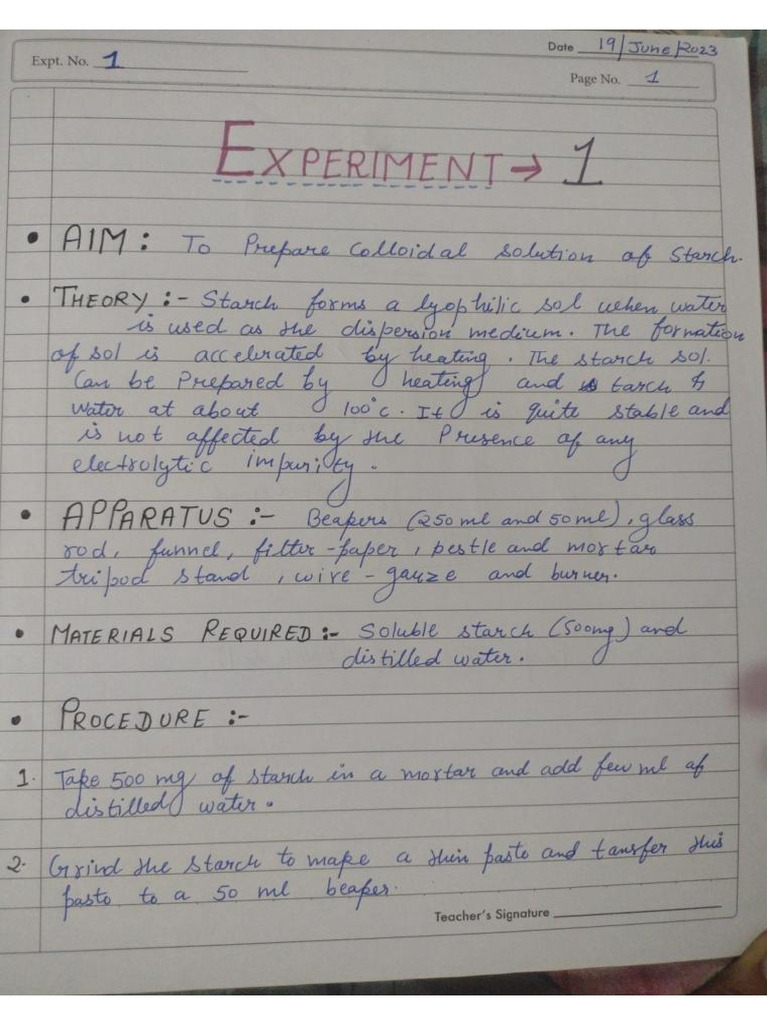 Date 19/June/2023
Expt. No. 1
Page No. 1
EXPERIMENT → 1
• AIM : To Prepare Colloidal solution of Starch.
• THEORY :- Starch forms a lyophilic sol when water
is used as the dispersion medium. The formation
of sol is accelrated by heating. The starch sol.
Can be Prepared by heating and starch &
water at about 100°c. It is quite stable and
is not affected by the Presence of any
electrolytic impurity.
• APPARATUS :- Beakers (250 ml and 50 ml), glass
rod, funnel, filter-paper, pestle and mortar
tripod stand, wire-gauze and burner.
• MATERIALS REQUIRED :- Soluble starch (500mg) and
distilled water.
• PROCEDURE :-
1. Take 500 mg of starch in a mortar and add few ml of
distilled water.
2. Grind the starch to make a thin paste and tansfer this
paste to a 50 ml beaker.
Teacher's Signature